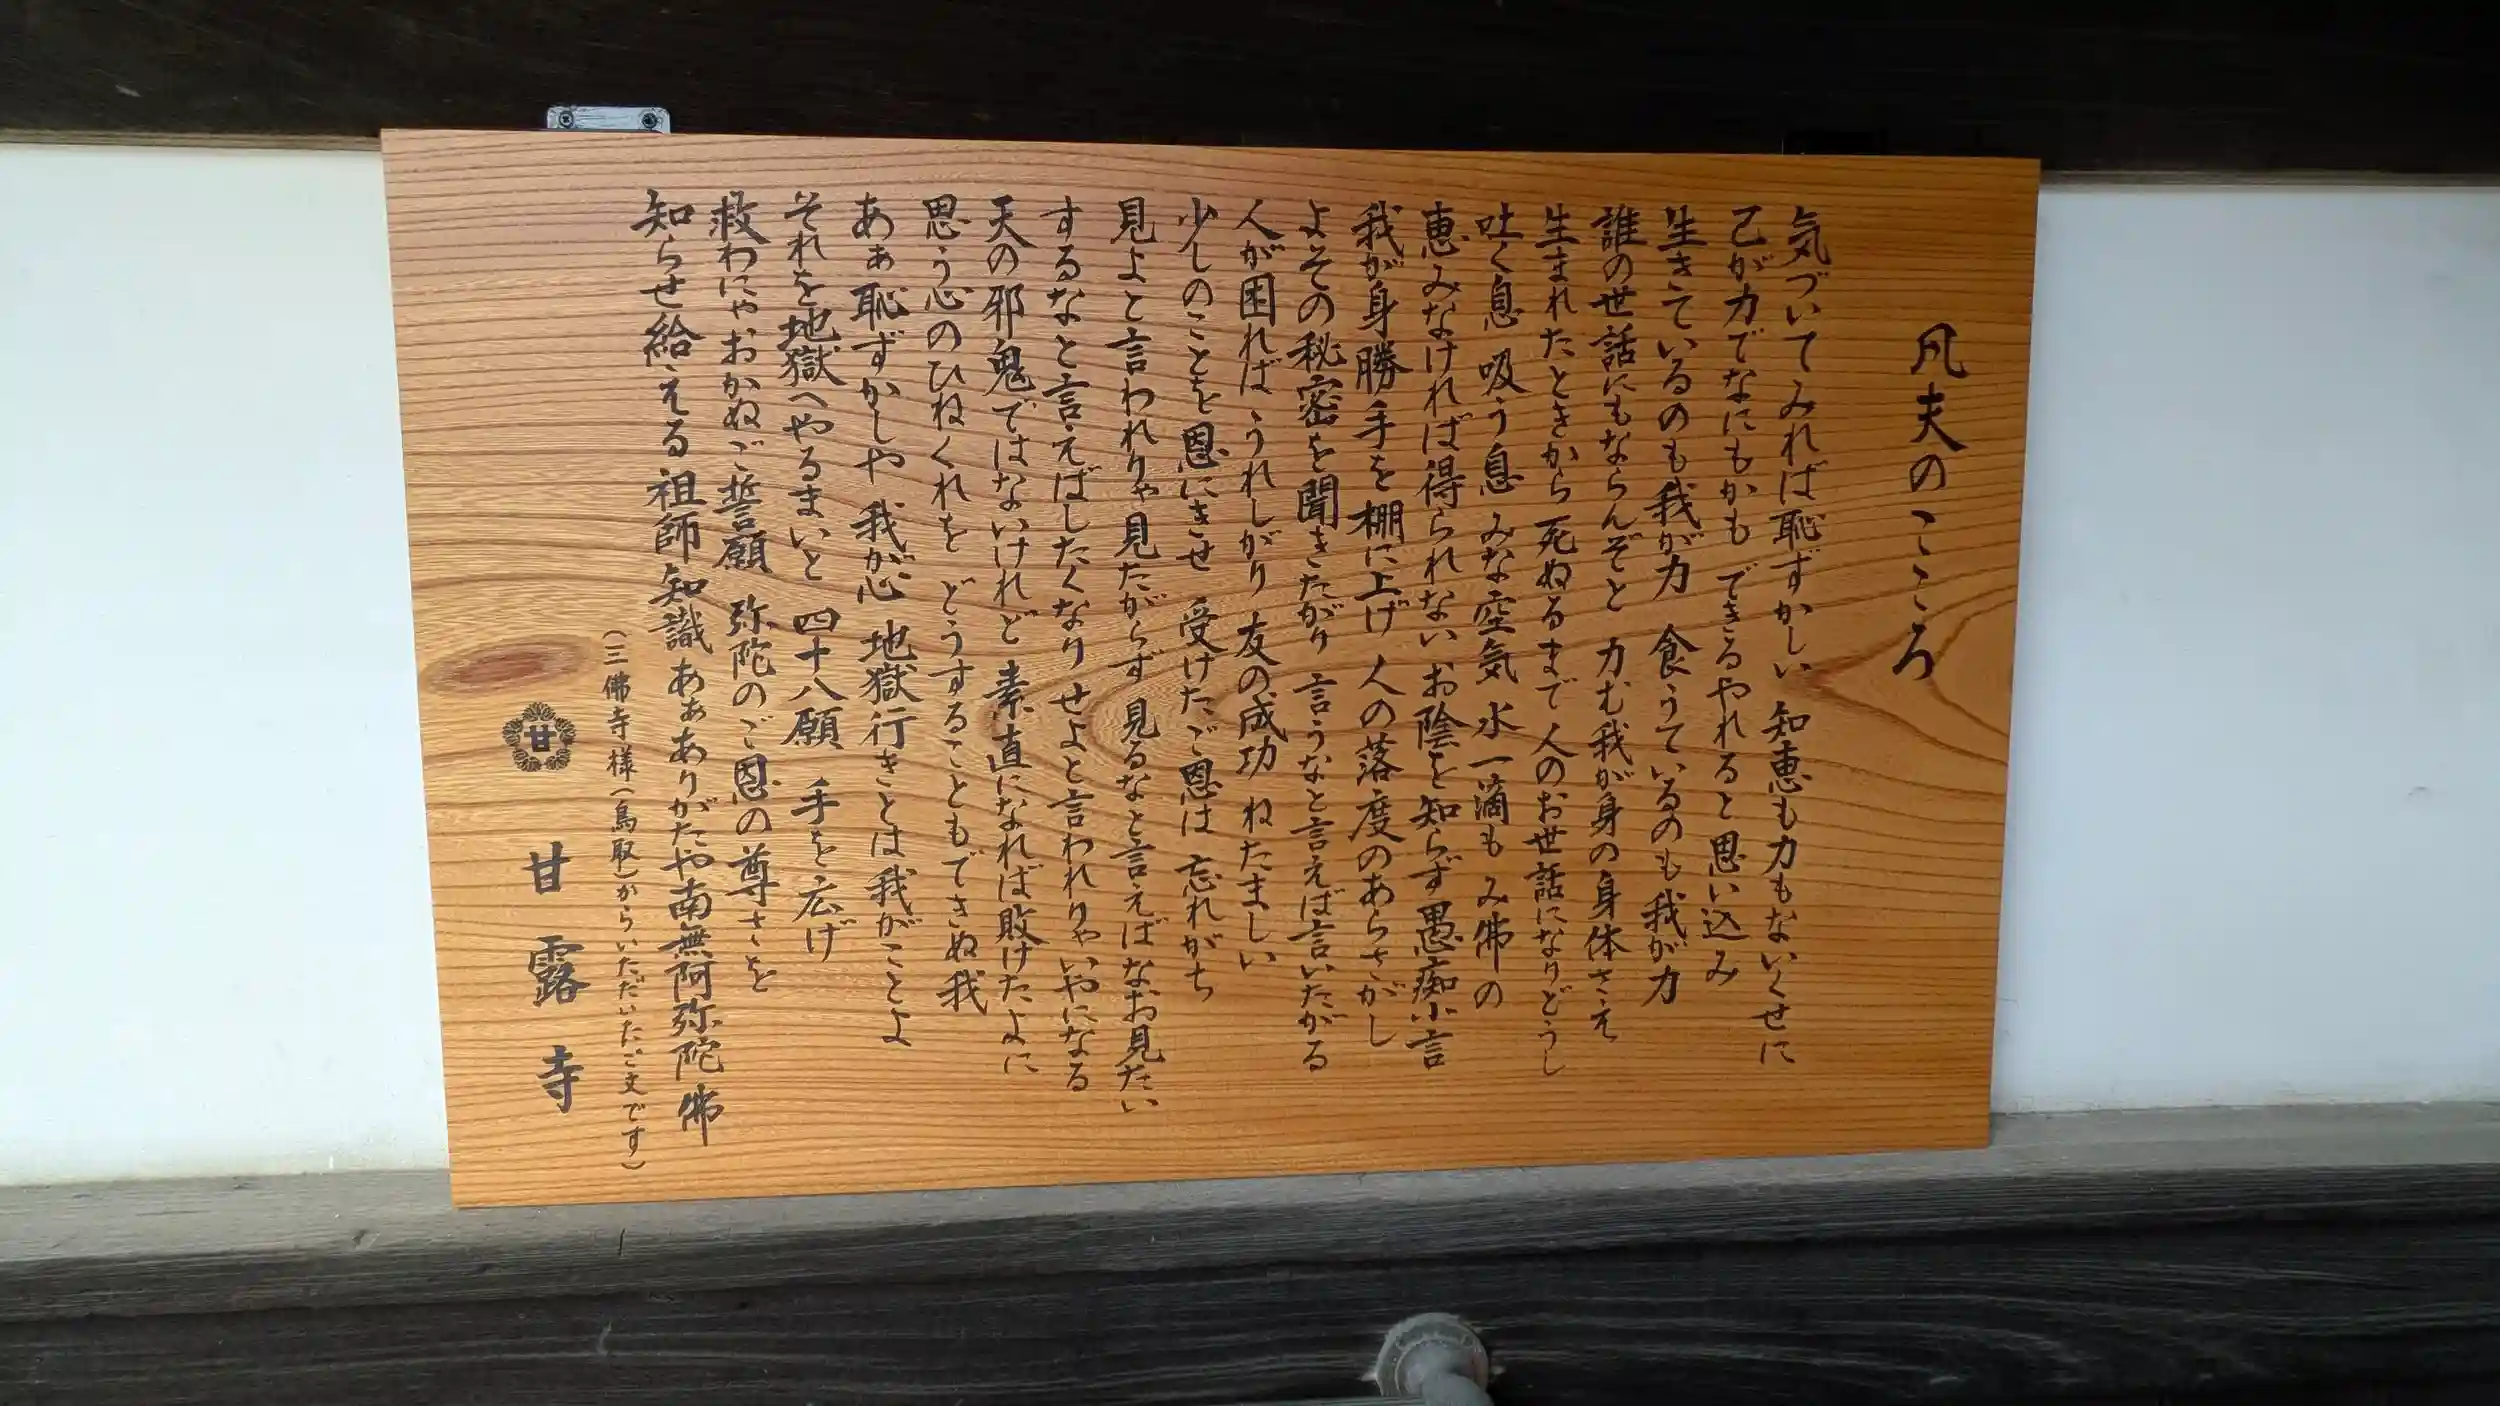 凡夫のこころ
気づいてみれば恥ずかしい 知恵も力もないくせに
己が力でなにもかも できるやれると思い込み
生きているのも我が力 食うているのも我が力
誰の世話にもならんぞと 力む我が身の身体さえ
生まれたときから死ぬるまで人のお世話になりどうし
吐く息 吸う息 みな空気 水一滴も み佛の
恵みなければ得られない お陰を知らず愚痴小言
我が身勝手を棚に上げ 人の落度のあらさがし
よその秘密を聞きたがり 言うなと言えば言いたがる
人が困れば うれしがり 友の成功 ねたましい
少しのことを恩にきせ 受けたご恩は 忘れがち
見よと言われりゃ見たがらず 見るなと言えばなお見たい
するなと言えばしたくなり せよと言われりゃいやになる
天の邪鬼ではないけれど 素直になれば敗けたよに
思う心のひねくれを どうすることもできぬ我
あぁ恥ずかしや 我が心 地獄行きとは我がことよ
それを地獄へやるまいと 四十八願 手を広げ
救わにゃおかぬご誓願 弥陀のご恩の尊さを
知らせ給える祖師知識 あぁありがたや南無阿弥陀佛
（三佛寺様（鳥取）からいただいたご文です）
甘
甘露寺